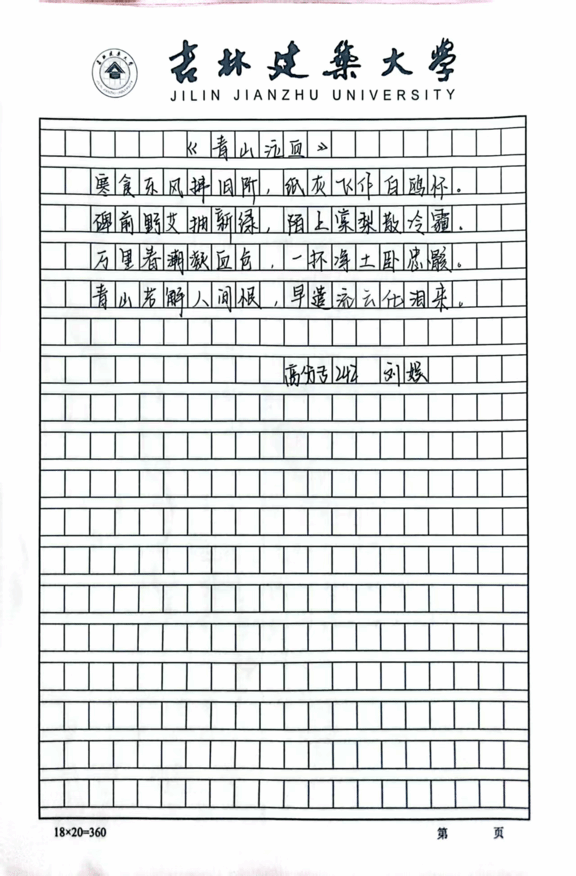 吉林建筑大学
JILIN JIANZHU UNIVERSITY
《青山泣血》
寒食东风拂旧阶，纸灰飞作白鸥怀。
碑前野艾抽新绿，陌上棠梨散冷霾。
万里春潮欺血色，一抔净土卧忠骸。
青山若解人间恨，早遣流云化泪来。
高分子242 刘
18×20=360 第 页